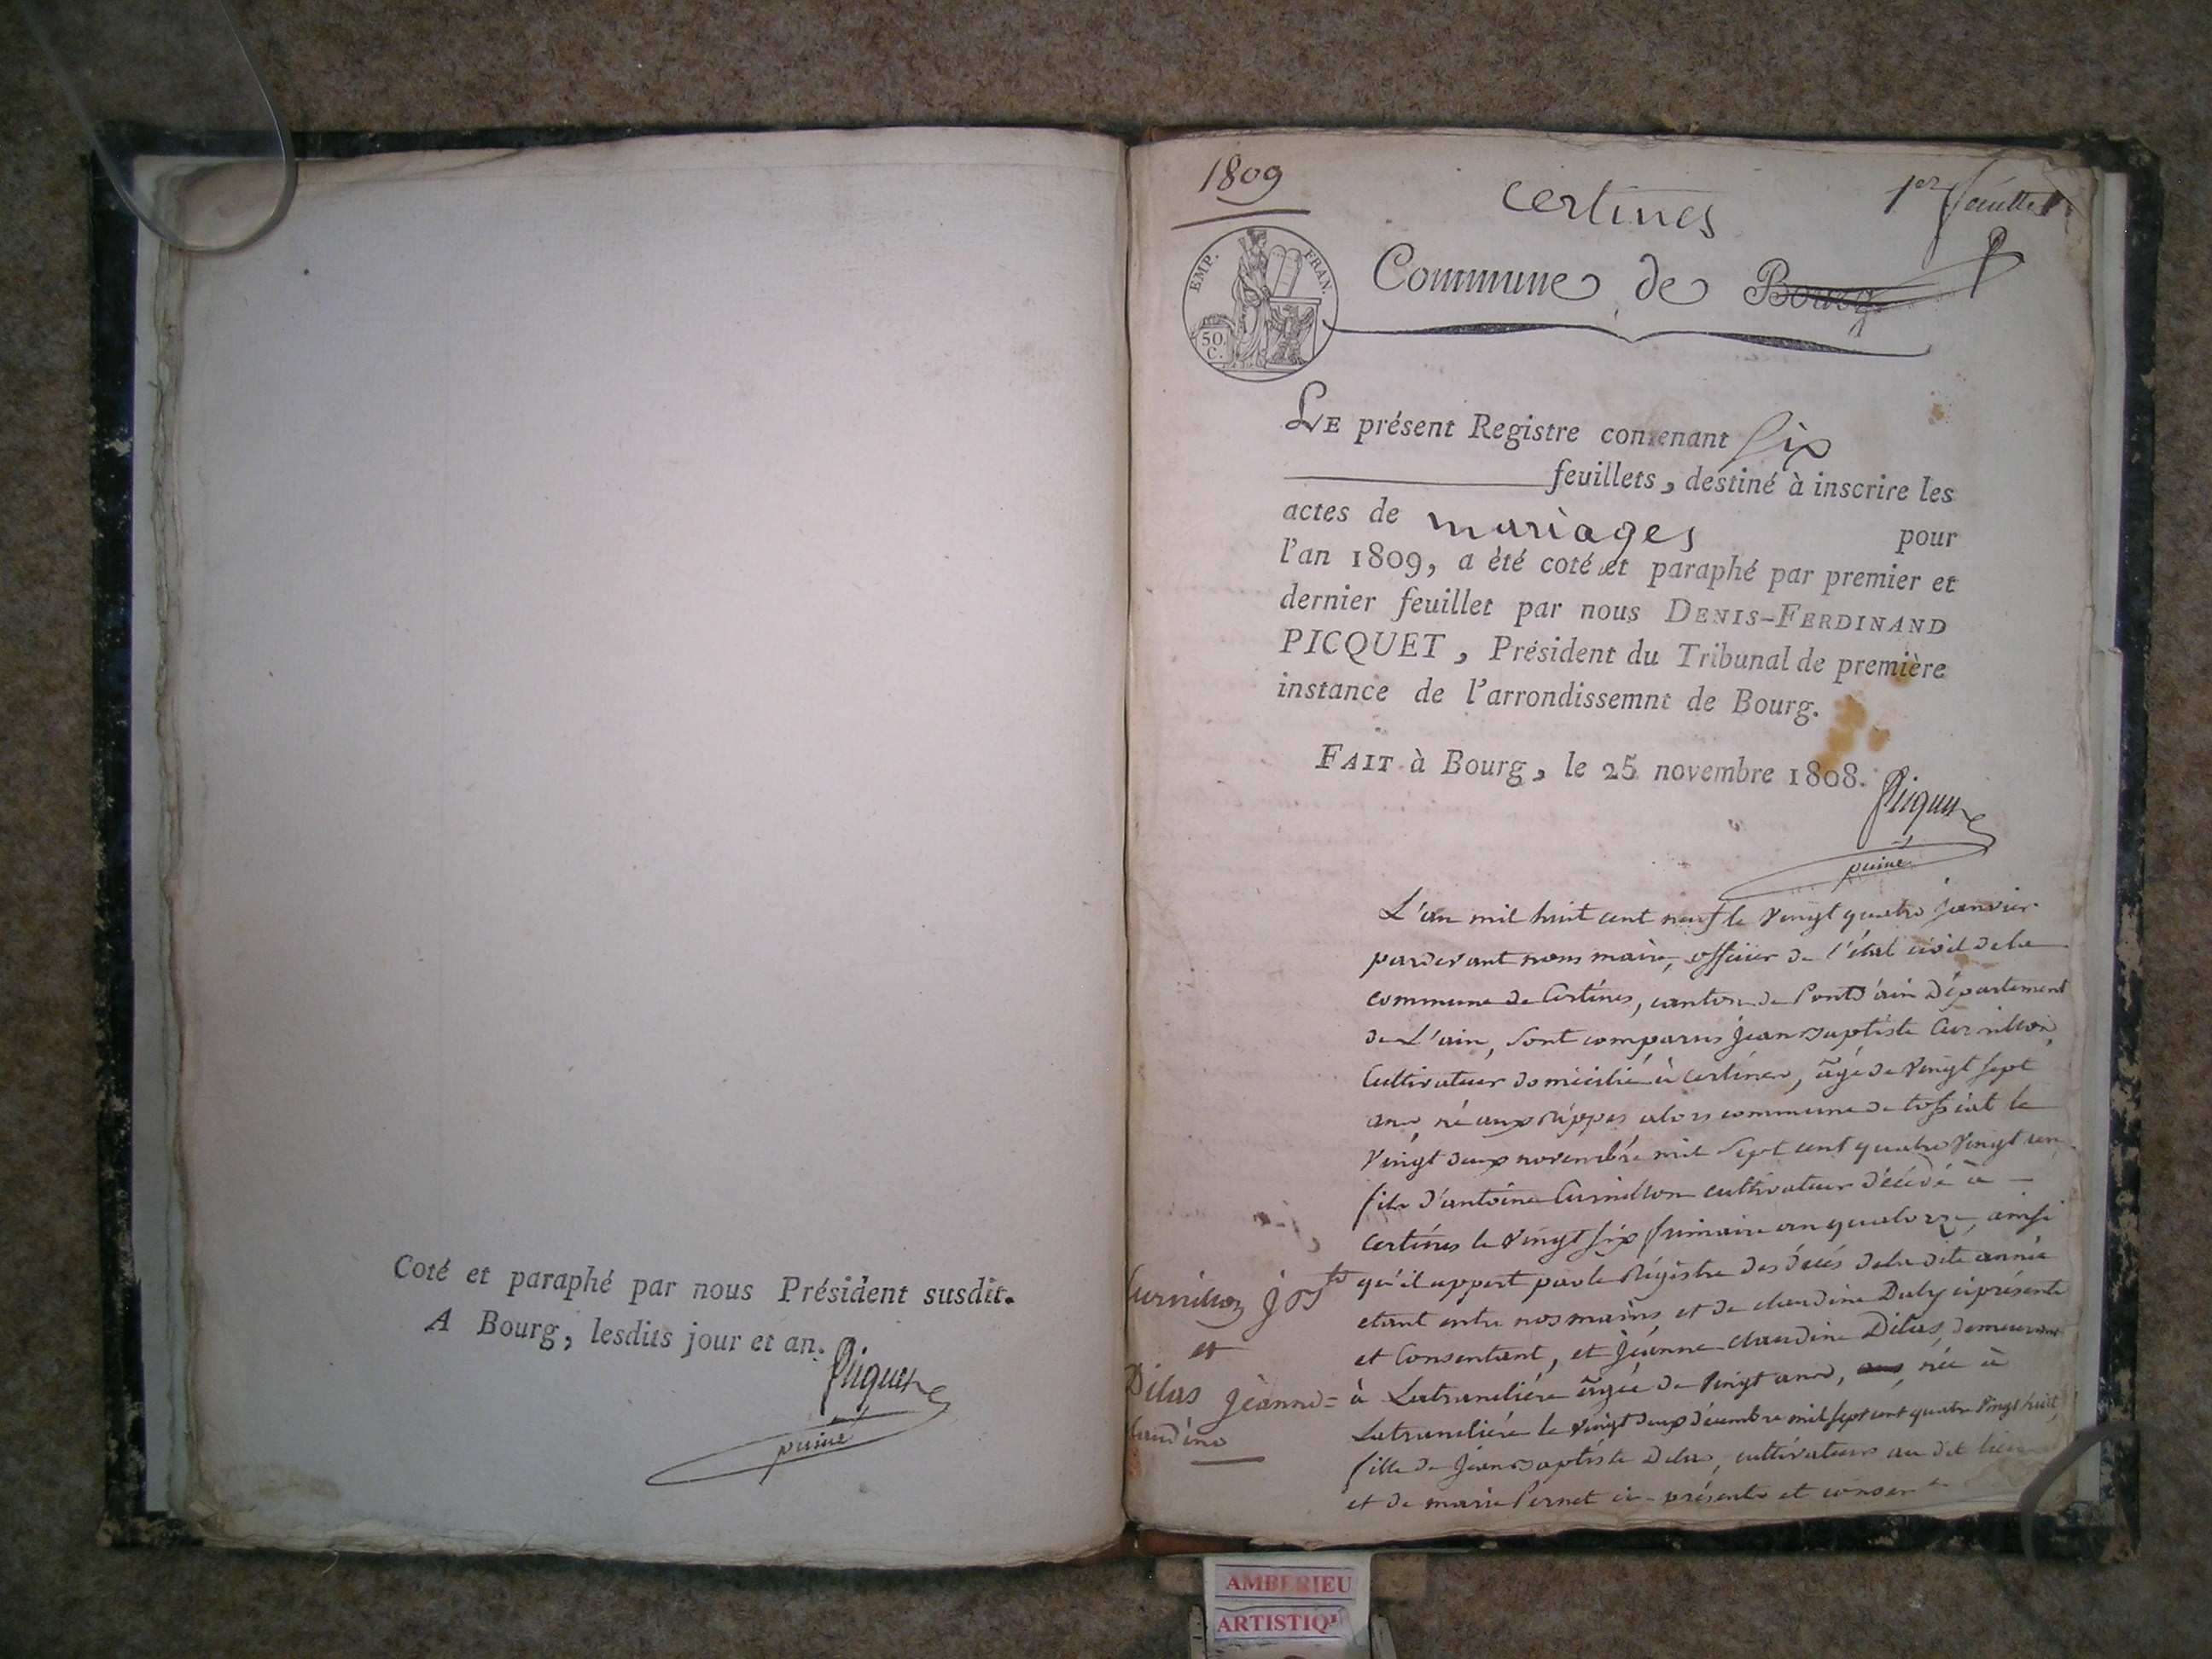 Coté et paraphé par nous Président susdit.
A Bourg, lesdits jour et an.
Picquet
puiné
1809
Certines
1er feuillet
EMP. FRAN.
50. C.
Commune de Bourg
LE présent Registre contenant Six
feuillets, destiné à inscrire les
actes de mariages pour
l'an 1809, a été coté et paraphé par premier et
dernier feuillet par nous DENIS-FERDINAND
PICQUET, Président du Tribunal de première
instance de l'arrondissemnt de Bourg.
FAIT à Bourg, le 25 novembre 1808.
Picquet
puiné
L'an mil huit cent neuf le vingt quatre janvier
pardevant nous maire, officier de l'état civil de la
commune de Certines, canton de Pont d'ain Département
de L'ain, sont comparus jean Baptiste Curnillon,
Cultivateur domicilié à certines, âgé de vingt sept
ans, né aux Rippes alors commune de tossiat le
vingt deux novembre mil sept cent quatre vingt un
fils d'antoine Curnillon cultivateur décédé à
certines le vingt six frimaire an quatorze, ainsi
qu'il appert par le Régistre des décés de la dite année
etant entre nos mains, et de claudine Duby ci présente
et Consentant, et jeanne claudine Dilas, demeurant
à Latranclière âgée de vingt ans, née à
Latranclière le vingt deux décembre mil sept cent quatre vingt huit,
fille de jean Baptiste Dilas, cultivateur au dit lieu
et de marie Pernet ci-présents et consent
Curnillon J Bte
et
Dilas jeanne=
claudine
AMBERIEU
ARTISTIQU